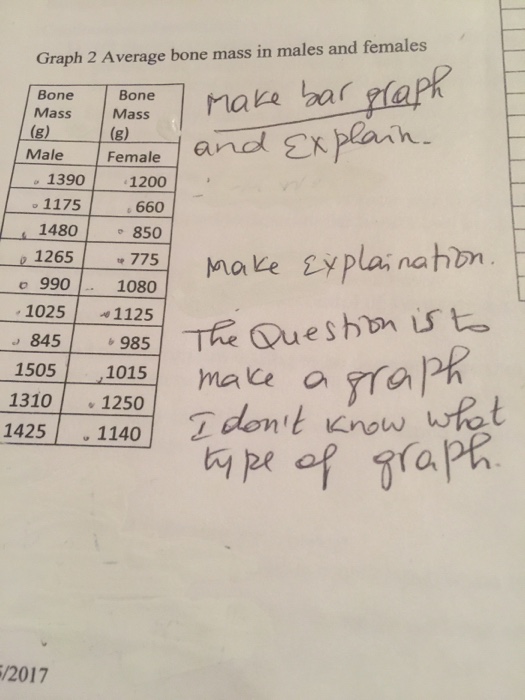 Graph 2 Average bone mass in males and females
Bone Mass (g) Bone Mass (g)
Male Female
1390 1200
1175 660
1480 850
1265 775
990 1080
1025 1125
845 985
1505 1015
1310 1250
1425 1140
Make bar graph
and Explain.
Make Explaination.
The Question is to
make a graph
I don't know what
type of graph.
/2017